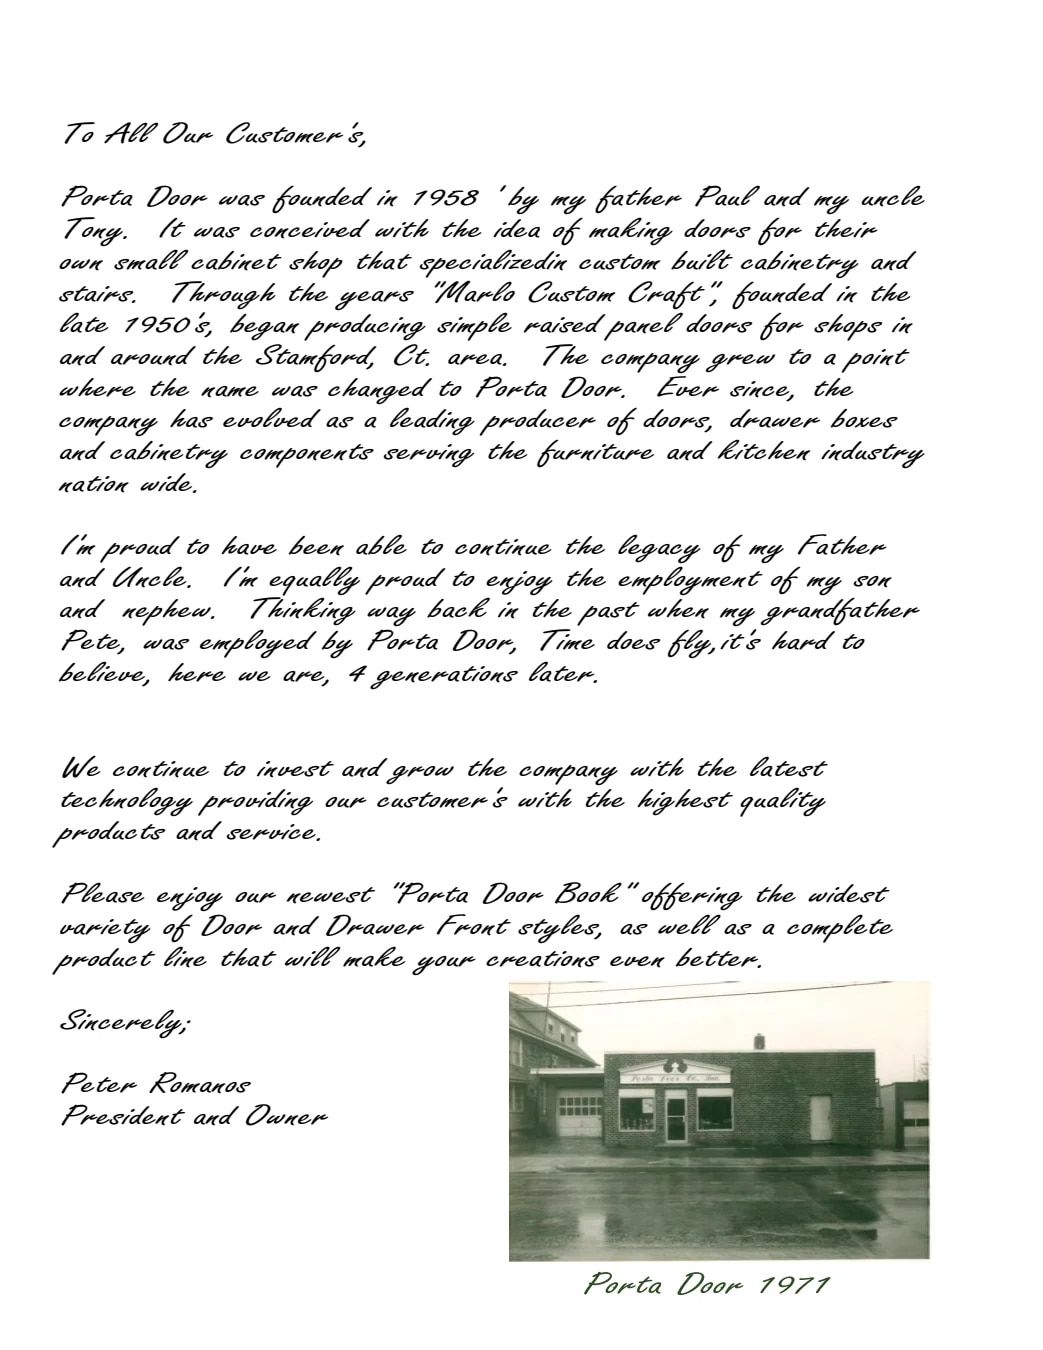 To All Our Customer's,
Porta Door was founded in 1958 ' by my father Paul and my uncle
Tony. It was conceived with the idea of making doors for their
own small cabinet shop that specializedin custom built cabinetry and
stairs. Through the years "Marlo Custom Craft", founded in the
late 1950's, began producing simple raised panel doors for shops in
and around the Stamford, Ct. area. The company grew to a point
where the name was changed to Porta Door. Ever since, the
company has evolved as a leading producer of doors, drawer boxes
and cabinetry components serving the furniture and kitchen industry
nation wide.
I'm proud to have been able to continue the legacy of my Father
and Uncle. I'm equally proud to enjoy the employment of my son
and nephew. Thinking way back in the past when my grandfather
Pete, was employed by Porta Door, Time does fly,it's hard to
believe, here we are, 4 generations later.
We continue to invest and grow the company with the latest
technology providing our customer's with the highest quality
products and service.
Please enjoy our newest "Porta Door Book" offering the widest
variety of Door and Drawer Front styles, as well as a complete
product line that will make your creations even better.
Sincerely;
Peter Romanos
President and Owner
Porta Door Co. Inc.
Porta Door 1971